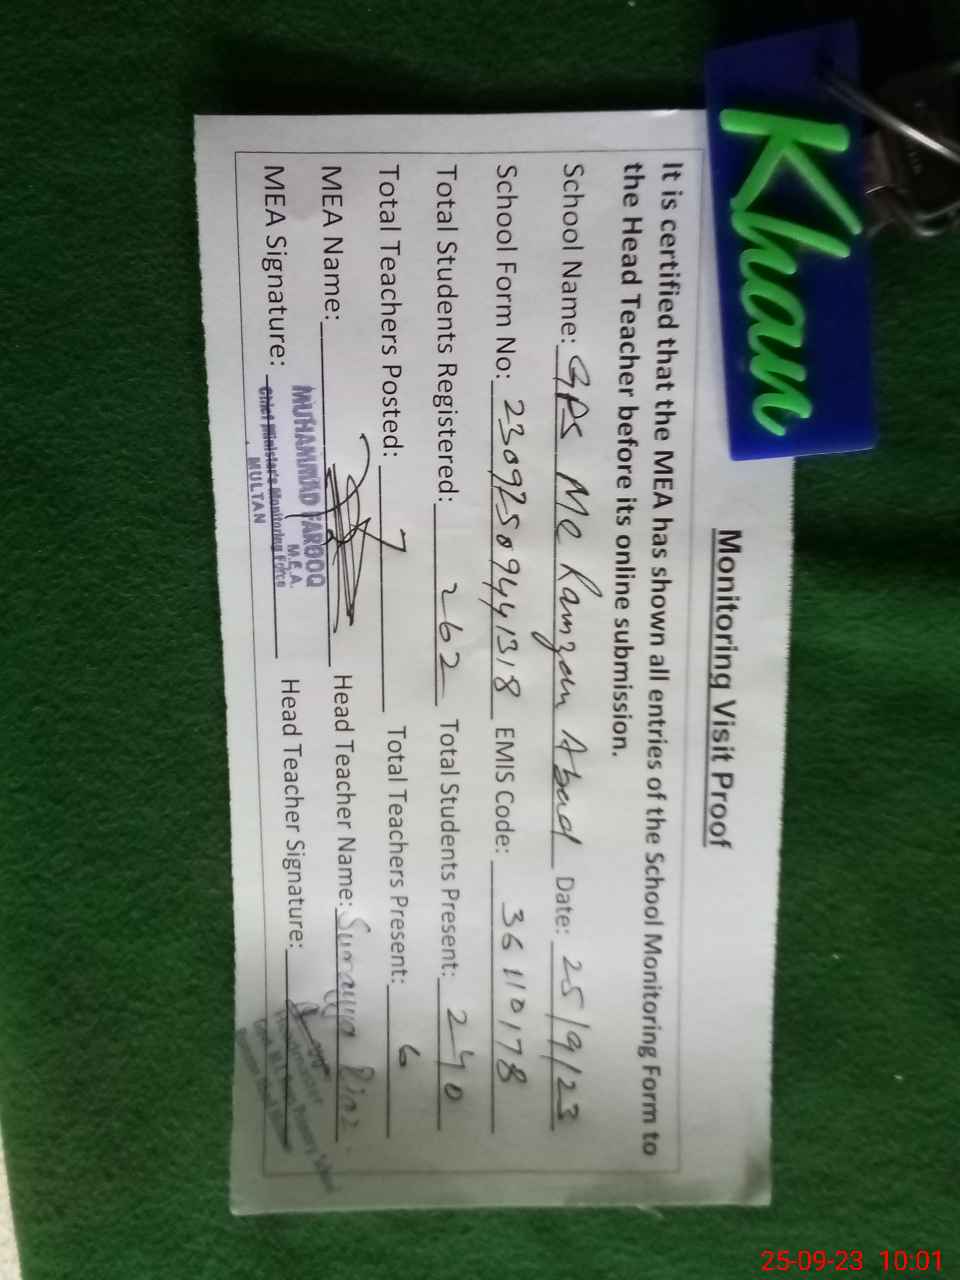 Khan
Monitoring Visit Proof
It is certified that the MEA has shown all entries of the School Monitoring Form to
the Head Teacher before its online submission.
School Name: GPS MC Ramzan Abad Date: 25/9/23
School Form No: 23092509441318 EMIS Code: 36110178
Total Students Registered: 262 Total Students Present: 240
Total Teachers Posted: 7 Total Teachers Present: 6
MEA Name: Head Teacher Name: Surayya
MUHAMMAD FAROOQ
M.E.A.
MEA Signature: Chief Minister's Monitoring Force Head Teacher Signature:
MULTAN
25-09-23 10:01